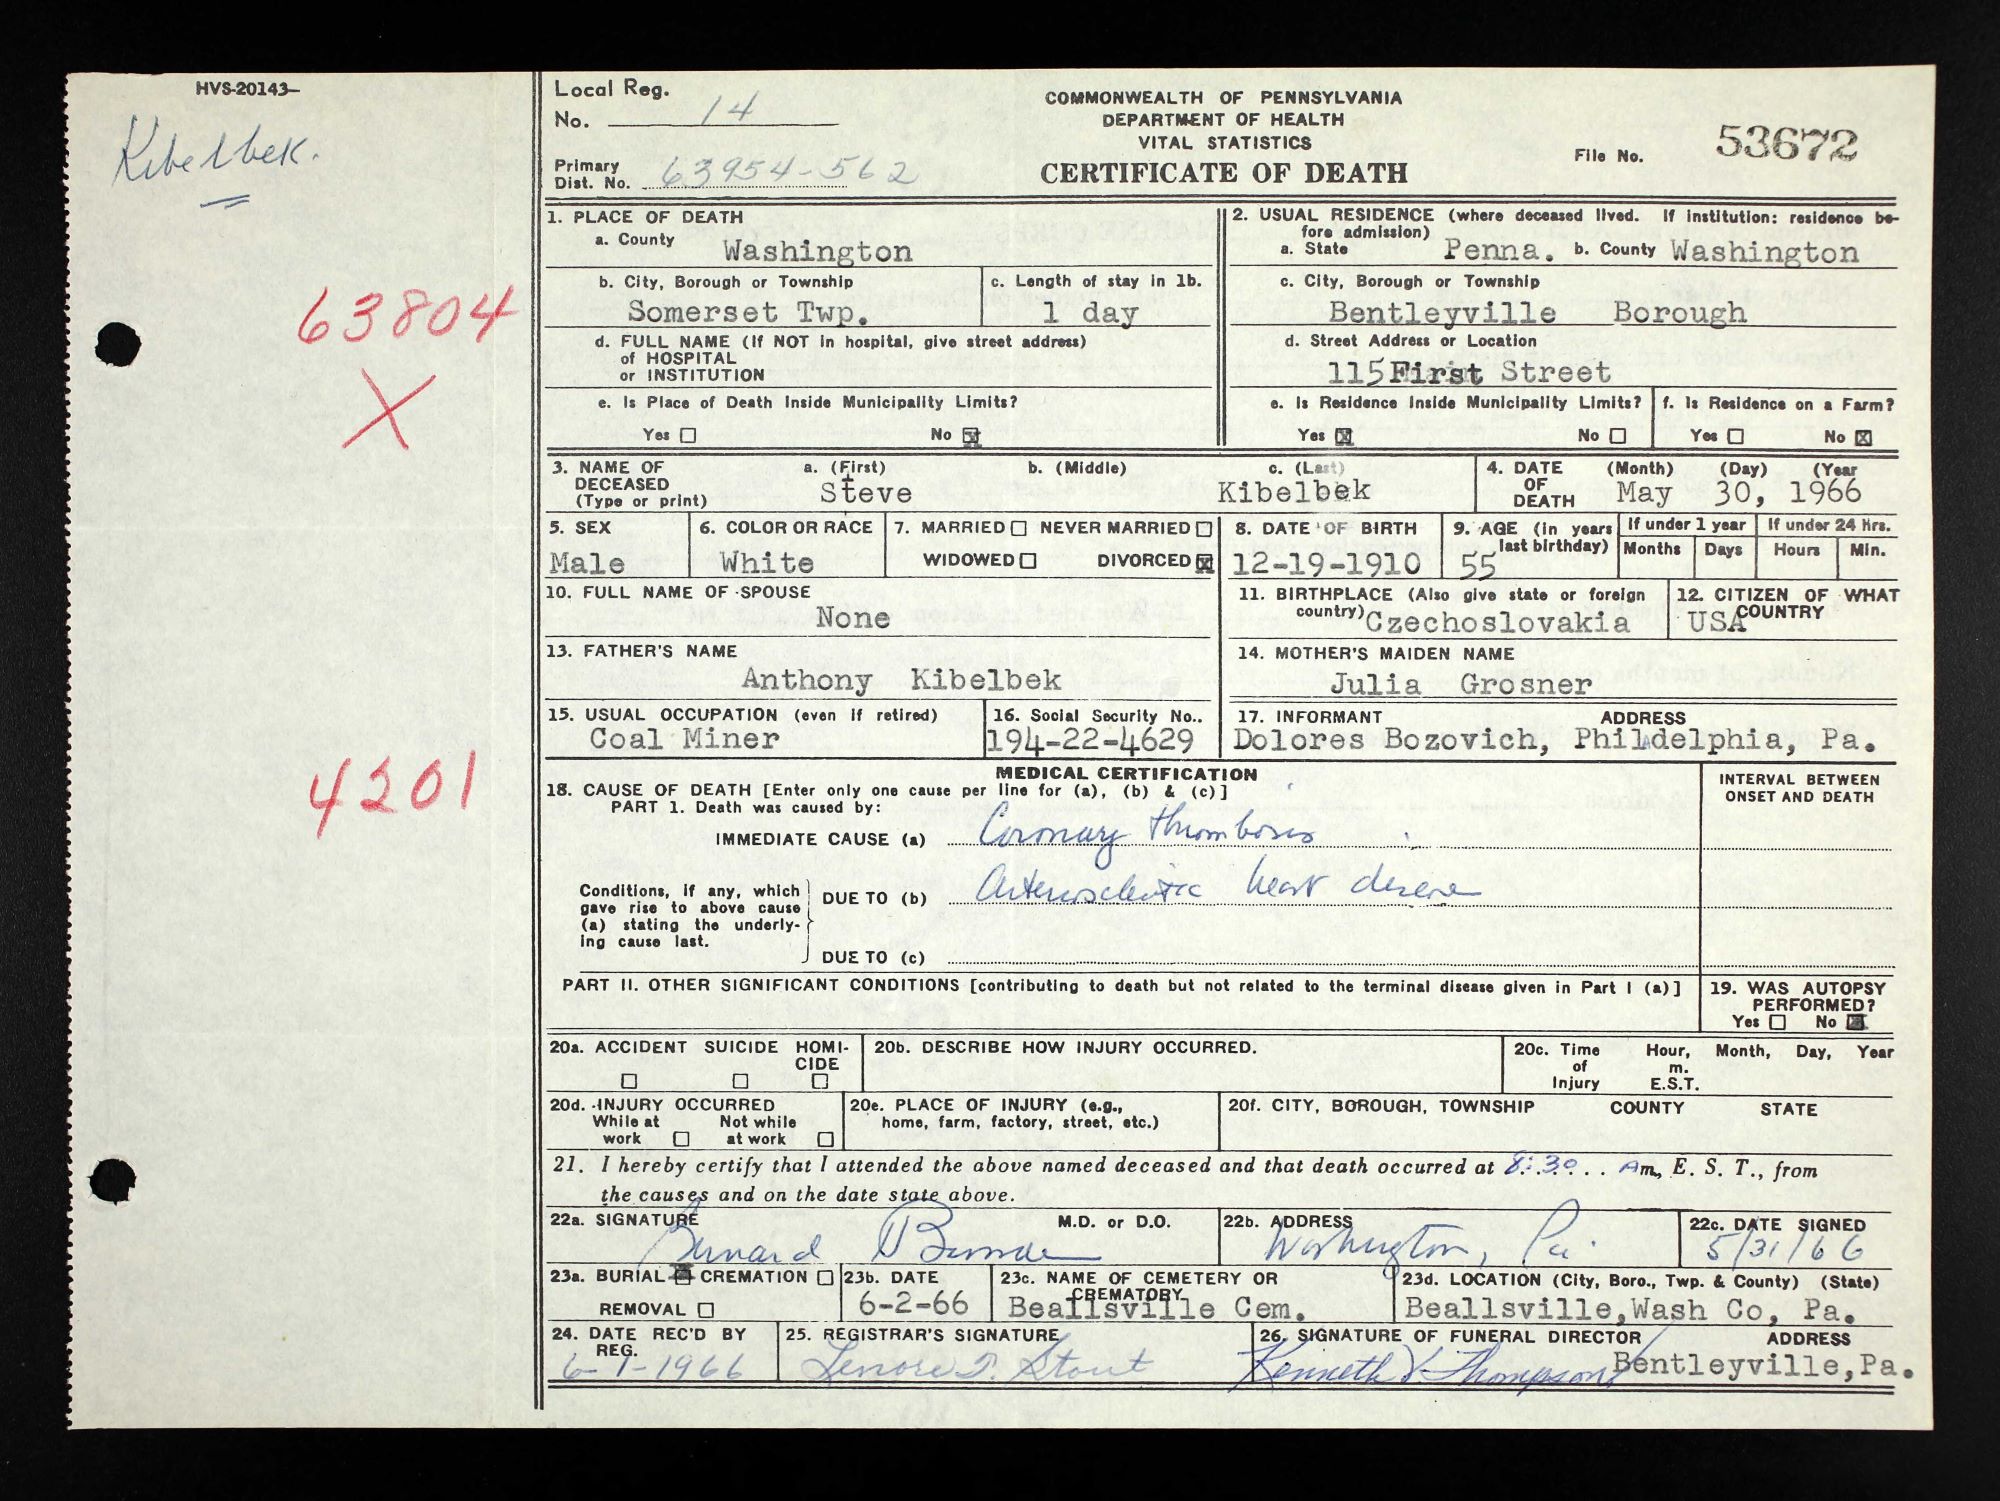 HVS-20143-
Kibelbek.
63804
X
4201
Local Reg.
No. 14
Primary
Dist. No. 63954-562
COMMONWEALTH OF PENNSYLVANIA
DEPARTMENT OF HEALTH
VITAL STATISTICS
CERTIFICATE OF DEATH
File No. 53672
1. PLACE OF DEATH
a. County Washington
b. City, Borough or Township
Somerset Twp.
c. Length of stay in 1b.
1 day
d. FULL NAME (If NOT in hospital, give street address)
of HOSPITAL
or INSTITUTION
e. Is Place of Death Inside Municipality Limits?
Yes ☐ No ☒
2. USUAL RESIDENCE (where deceased lived. If institution: residence be-
fore admission)
a. State Penna. b. County Washington
c. City, Borough or Township
Bentleyville Borough
d. Street Address or Location
115 First Street
e. Is Residence Inside Municipality Limits?
Yes ☒ No ☐
f. Is Residence on a Farm?
Yes ☐ No ☒
3. NAME OF
DECEASED
(Type or print)
a. (First) b. (Middle) c. (Last)
Steve Kibelbek
4. DATE
OF
DEATH
(Month) (Day) (Year
May 30, 1966
5. SEX
Male
6. COLOR OR RACE
White
7. MARRIED ☐ NEVER MARRIED ☐
WIDOWED ☐ DIVORCED ☒
8. DATE OF BIRTH
12-19-1910
9. AGE (in years
last birthday)
55
If under 1 year
Months Days
If under 24 Hrs.
Hours Min.
10. FULL NAME OF SPOUSE
None
11. BIRTHPLACE (Also give state or foreign
country) Czechoslovakia
12. CITIZEN OF WHAT
COUNTRY
USA
13. FATHER'S NAME
Anthony Kibelbek
14. MOTHER'S MAIDEN NAME
Julia Grosner
15. USUAL OCCUPATION (even if retired)
Coal Miner
16. Social Security No..
194-22-4629
17. INFORMANT ADDRESS
Dolores Bozovich, Philadelphia, Pa.
MEDICAL CERTIFICATION
18. CAUSE OF DEATH [Enter only one cause per line for (a), (b) & (c)]
PART 1. Death was caused by:
INTERVAL BETWEEN
ONSET AND DEATH
IMMEDIATE CAUSE (a) Coronary thrombosis
Conditions, if any, which
gave rise to above cause
(a) stating the underly-
ing cause last.
DUE TO (b) Arteriosclerotic heart disease
DUE TO (c)
PART II. OTHER SIGNIFICANT CONDITIONS [contributing to death but not related to the terminal disease given in Part I (a)]
19. WAS AUTOPSY
PERFORMED?
Yes ☐ No ☒
20a. ACCIDENT SUICIDE HOMI-
CIDE
☐ ☐ ☐
20b. DESCRIBE HOW INJURY OCCURRED.
20c. Time
of
Injury
Hour, Month, Day, Year
m.
E.S.T.
20d. INJURY OCCURRED
While at
work ☐
Not while
at work ☐
20e. PLACE OF INJURY (e.g.,
home, farm, factory, street, etc.)
20f. CITY, BOROUGH, TOWNSHIP COUNTY STATE
21. I hereby certify that I attended the above named deceased and that death occurred at 8:30 Am, E. S. T., from
the causes and on the date state above.
22a. SIGNATURE M.D. or D.O.
Bernard
22b. ADDRESS
Washington, Pa.
22c. DATE SIGNED
5/31/66
23a. BURIAL ☒ CREMATION ☐
REMOVAL ☐
23b. DATE
6-2-66
23c. NAME OF CEMETERY OR
CREMATORY
Beallsville Cem.
23d. LOCATION (City, Boro., Twp. & County) (State)
Beallsville, Wash Co, Pa.
24. DATE REC'D BY
REG.
6-1-1966
25. REGISTRAR'S SIGNATURE
Lenore T. Stout
26. SIGNATURE OF FUNERAL DIRECTOR ADDRESS
Kenneth V. Thompson Bentleyville, Pa.